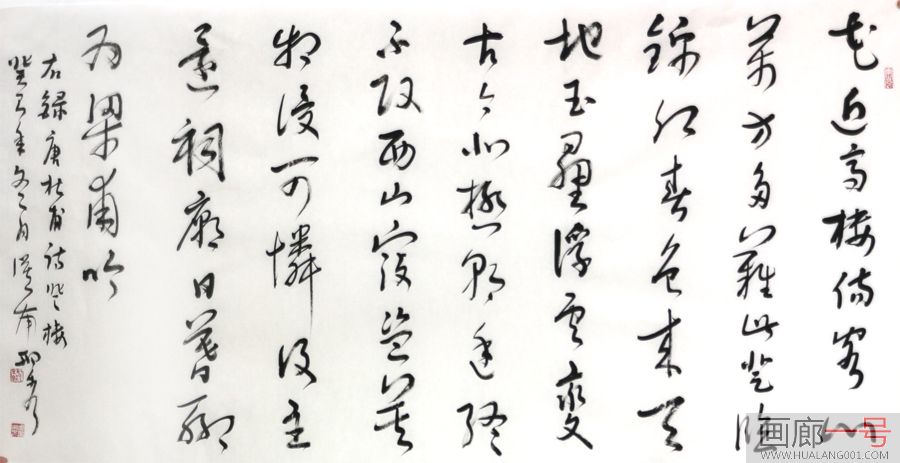 花近高樓傷客心
萬方多難此登臨
錦江春色來天
地玉壘浮雲變
古今北極朝廷終
不改西山寇盜莫
相侵可憐後主
還祠廟日暮聊
為梁甫吟
右錄唐杜甫詩登樓
癸巳年冬月
画廊一号
WWW.HUALANG001.COM